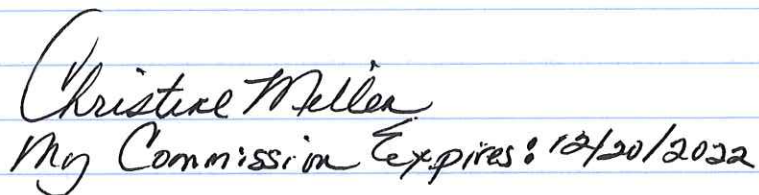 Christine Miller
My Commission Expires: 12/20/2022